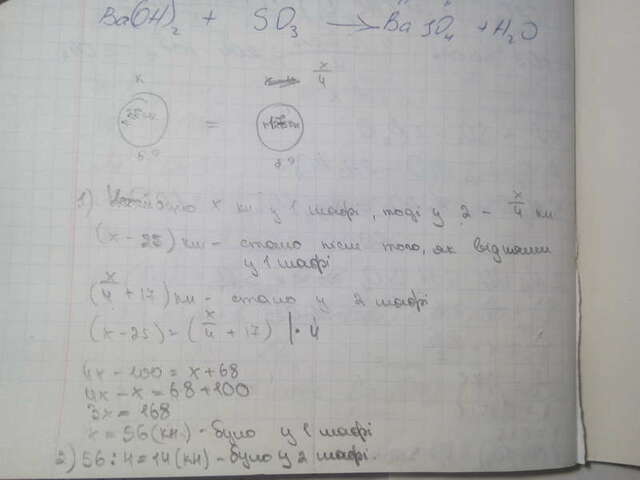 Ba(OH)₂ + SO₃ → BaSO₄ + H₂O
x x/4
=
1) було x кн у 1 шафі, тоді у 2 - x/4 кн
(x - 25) кн - стало після того, як відняли
у 1 шафі
(x/4 + 17) кн - стало у 2 шафі
(x-25) = (x/4 + 17) | · 4
4x - 100 = x + 68
4x - x = 68 + 100
3x = 168
x = 56 (кн.) - було у 1 шафі
2) 56 : 4 = 14 (кн) - було у 2 шафі.